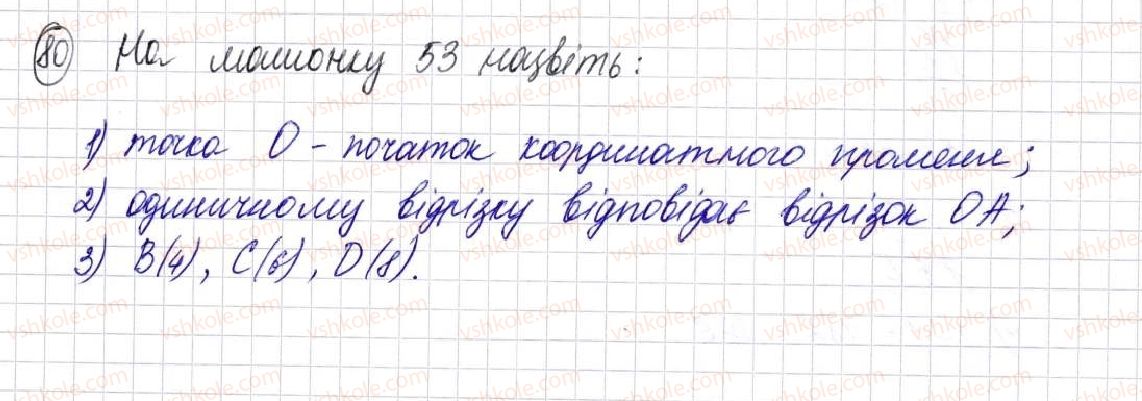 80 На малюнку 53 назвіть:
1) точка О - початок координатного променя;
2) одиничному відрізку відповідає відрізок ОА;
3) В(4), С(6), D(8).